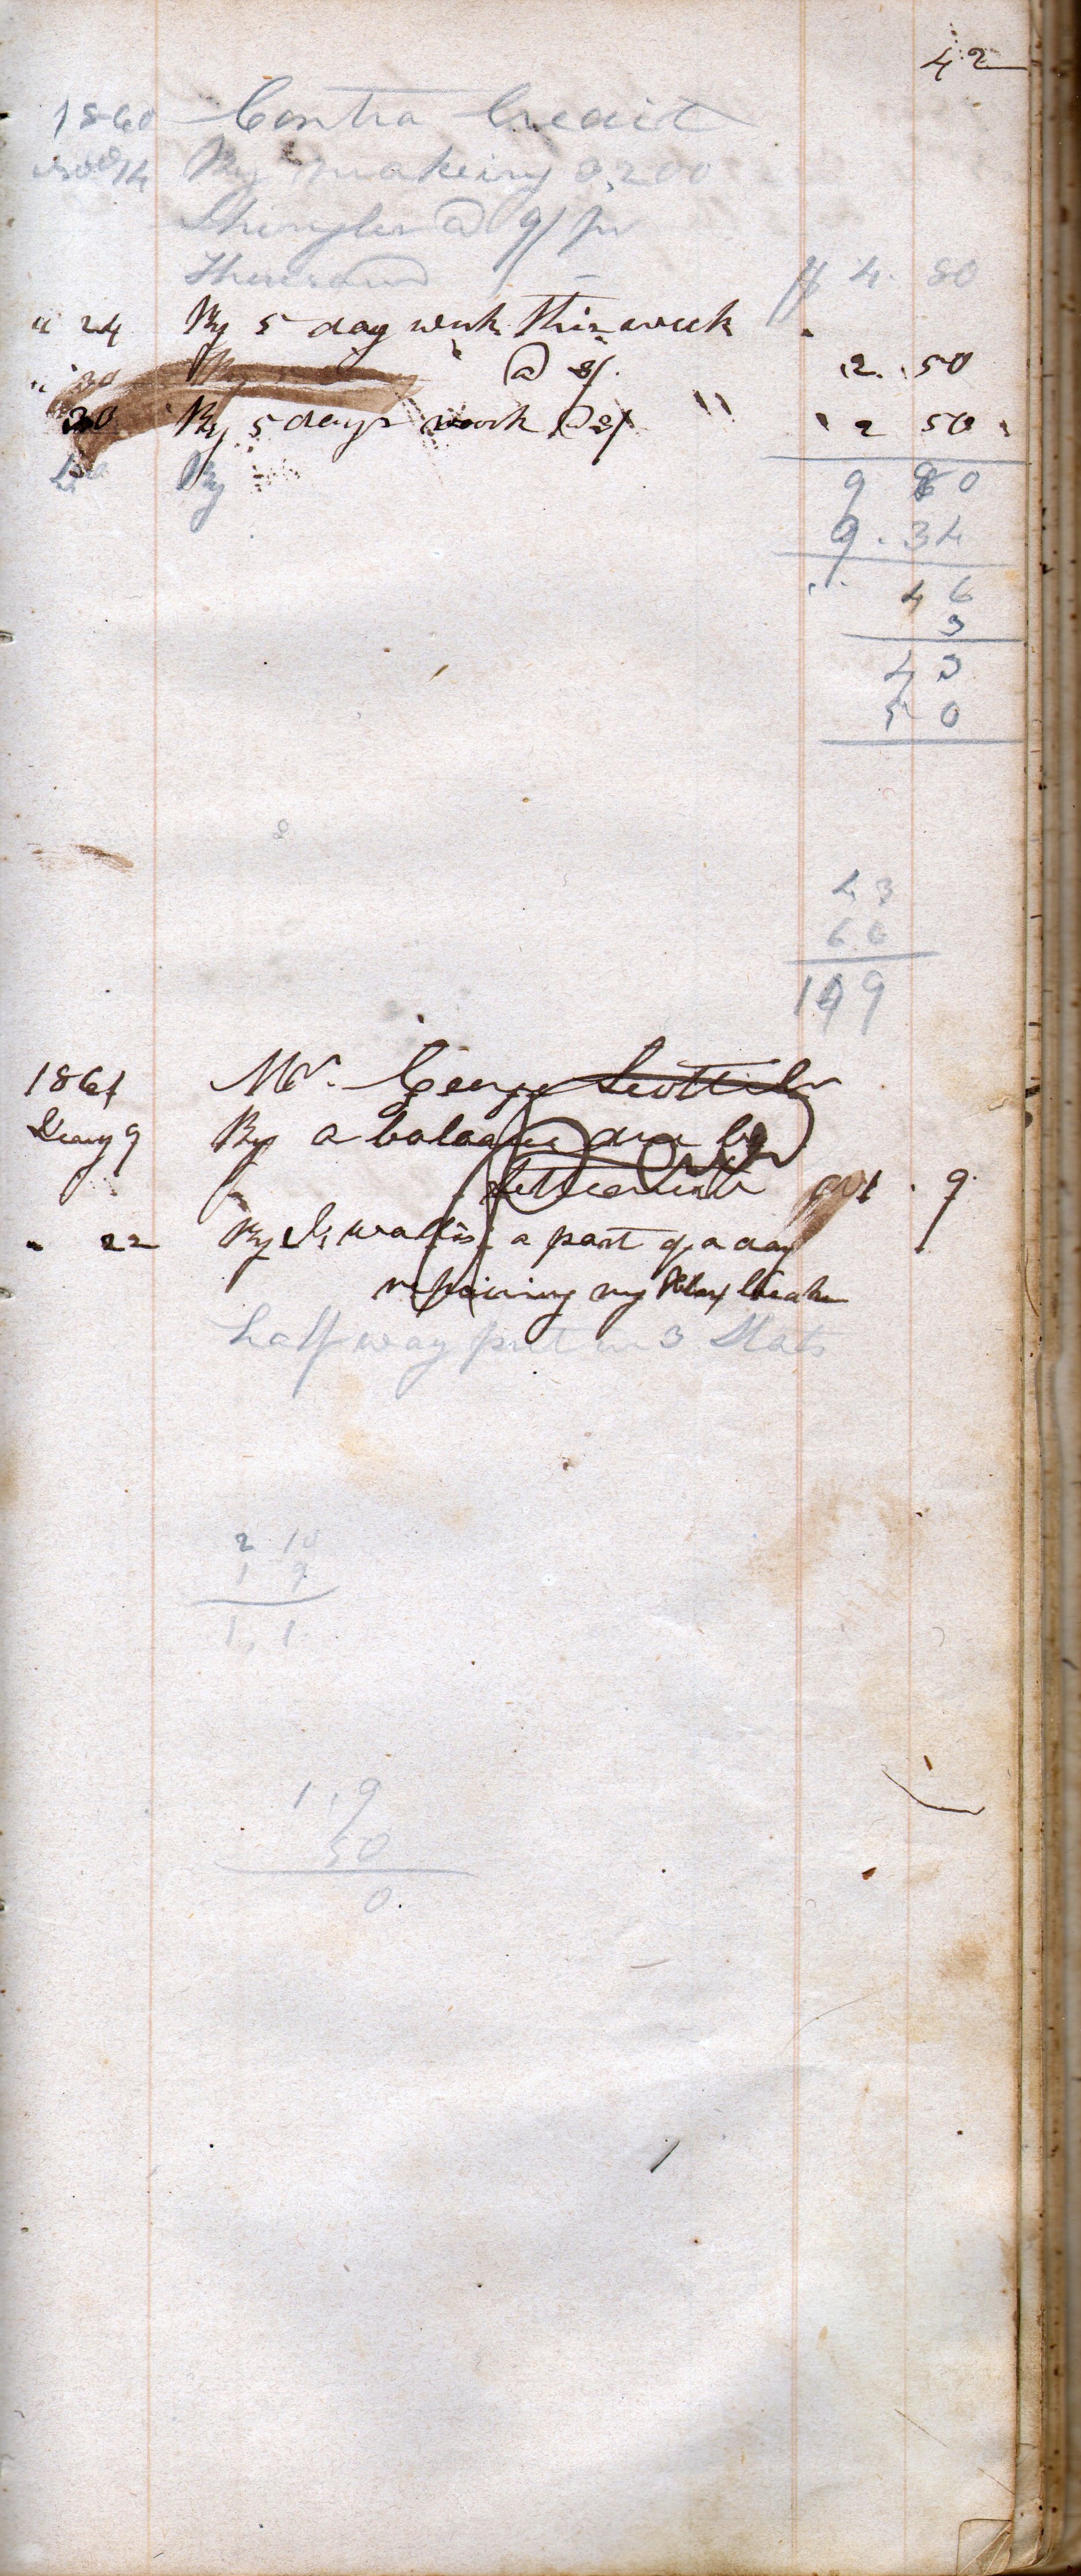 42
1860 Contra Credit
14 By makeing 3,200
Shingles @ 9/ pr
Thousand $ 4. 80
" 24 By 5 day work this week
@ 4/. 2. 50
30 By 5 days work @ 4/ " 2 50
By 9 80
9. 34
46
3
43
50
43
66
109
1861 Mr. George Scott
9 By a balance due by
settlement 1. 9
" 22 By a part of a day
repairing my Flax breake
half way put in 3 Slats
2 10
1 9
1, 1
1, 9
50
0.